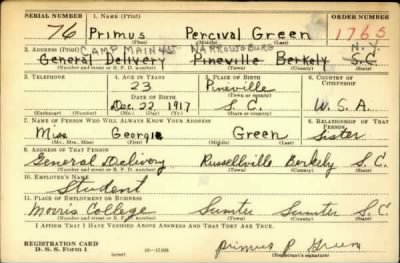 SERIAL NUMBER 1. NAME (Print) ORDER NUMBER
76 Primus Percival Green 1765
(First) (Middle) (Last)
2. ADDRESS (Print) CAMP MAIN NARROWSBURG N.Y.
General Delivery Pineville Berkely S.C.
(Number and street or R. F. D. number) (Town) (County) (State)
3. TELEPHONE 4. AGE IN YEARS 5. PLACE OF BIRTH 6. COUNTRY OF CITIZENSHIP
23 Pineville
DATE OF BIRTH (Town or county)
Dec. 22 1917 S.C. U.S.A.
(Exchange) (Number) (Mo.) (Day) (Yr.) (State or country)
7. NAME OF PERSON WHO WILL ALWAYS KNOW YOUR ADDRESS 8. RELATIONSHIP OF THAT PERSON
Miss Georgie Green Sister
(Mr., Mrs., Miss) (First) (Middle) (Last)
9. ADDRESS OF THAT PERSON
General Delivery Russellville Berkely S.C.
(Number and street or R. F. D. number) (Town) (County) (State)
10. EMPLOYER'S NAME
Student
11. PLACE OF EMPLOYMENT OR BUSINESS
Morris College Sumter Sumter S.C.
(Number and street or R. F. D. number) (Town) (County) (State)
I AFFIRM THAT I HAVE VERIFIED ABOVE ANSWERS AND THAT THEY ARE TRUE.
REGISTRATION CARD
D. S. S. Form 1 16-17105 Primus P Green
(Registrant's signature)